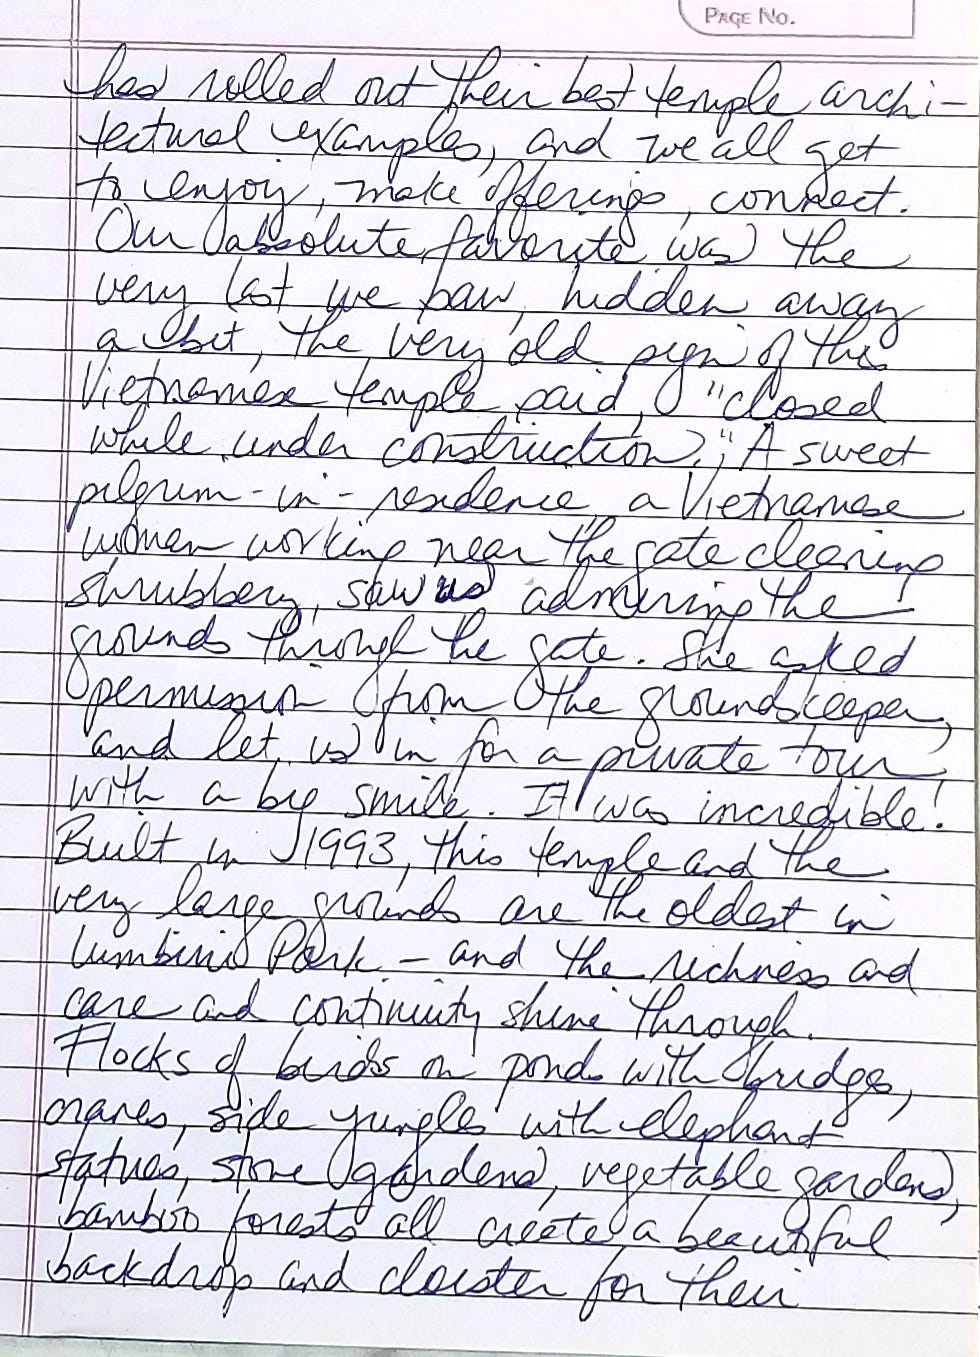 PAGE No.
has rolled out their best temple archi-
tectural examples, and we all get
to enjoy, make offerings, connect.
Our absolute favorite was the
very last we saw, hidden away
a bit, the very old sign of this
Vietnamese temple said, "closed
while under construction." A sweet
pilgrim-in-residence, a Vietnamese
woman working near the gate clearing
shrubbery, saw us admiring the
grounds through the gate. She asked
permission from the groundskeeper,
and let us in for a private tour,
with a big smile. It was incredible!
Built in 1993, this temple and the
very large grounds are the oldest in
Lumbini Park - and the richness and
care and continuity shine through.
Flocks of birds on ponds with bridges,
cranes, side jungles with elephant
statues, stone gardens, vegetable gardens,
bamboo forests all create a beautiful
backdrop and cloister for their